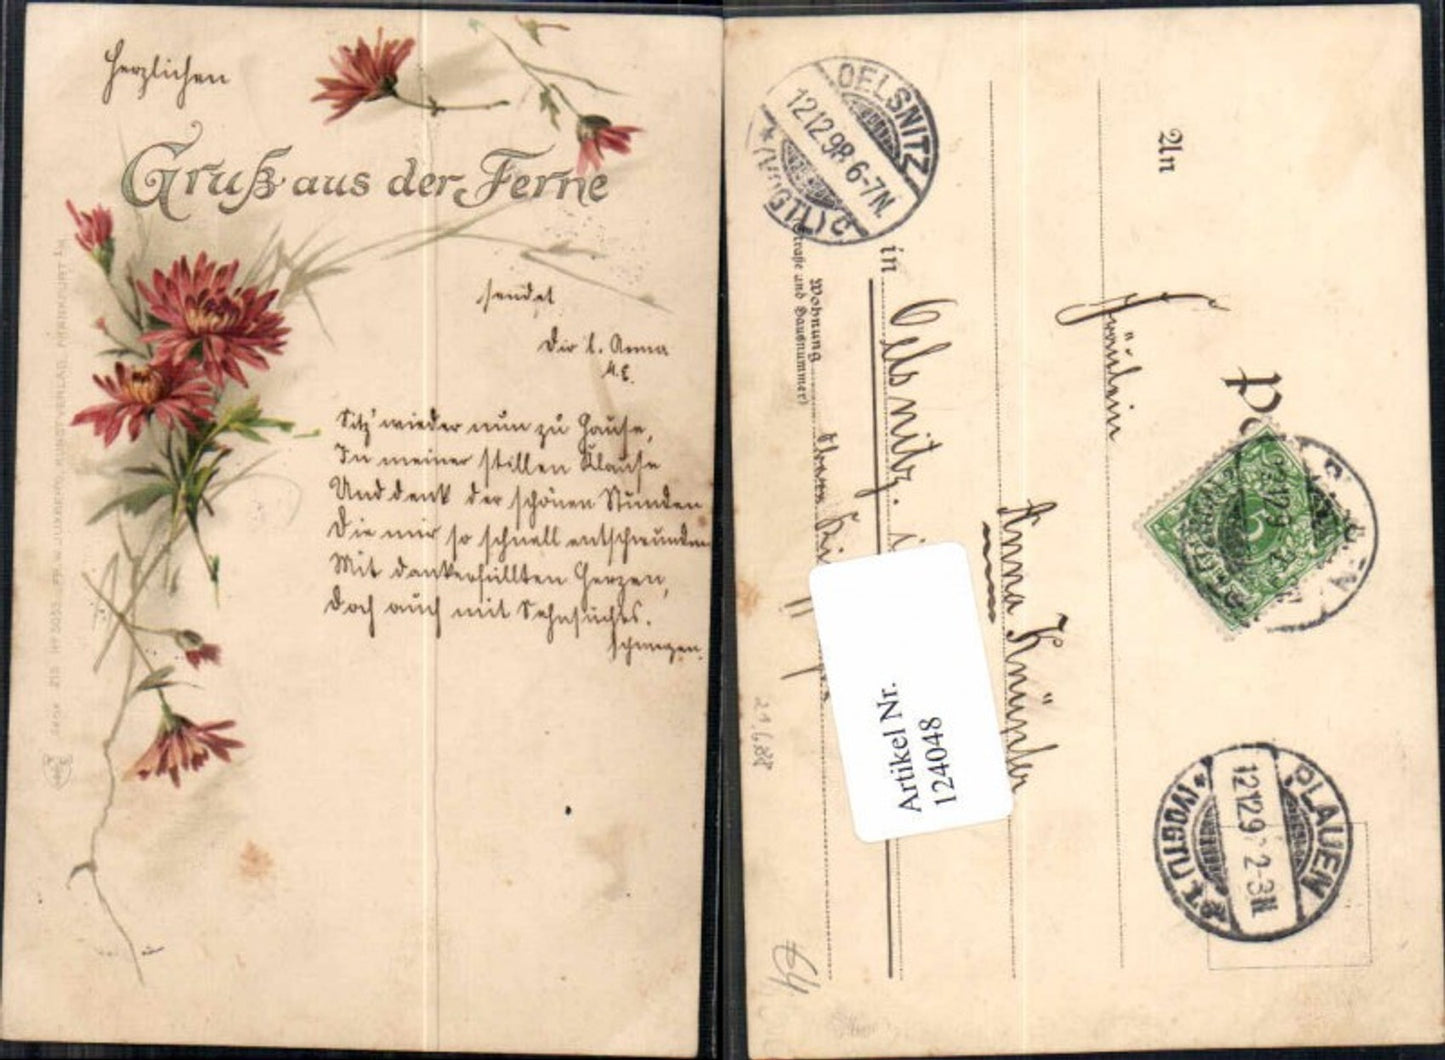 Herzlichen
Gruß aus der Ferne
sendet
Dir l. Anna
M. E.
Sitz' wieder nun zu Hause,
In meiner stillen Klause
Und denk der schönen Stunden
Die mir so schnell entschwunden
Mit dankerfüllten Herzen,
Doch auch mit Sehnsuchts-
schmerzen.
OELSNITZ
12 12 98 6-7N.
(VOGTL)
An
Fräulein
Anna Knüpfer
in Oelsnitz. i
Wohnung
(Straße und Hausnummer)
Artikel Nr.
124048
5
PLAUEN
12 12 9 2-3N
(VOGTL)
64